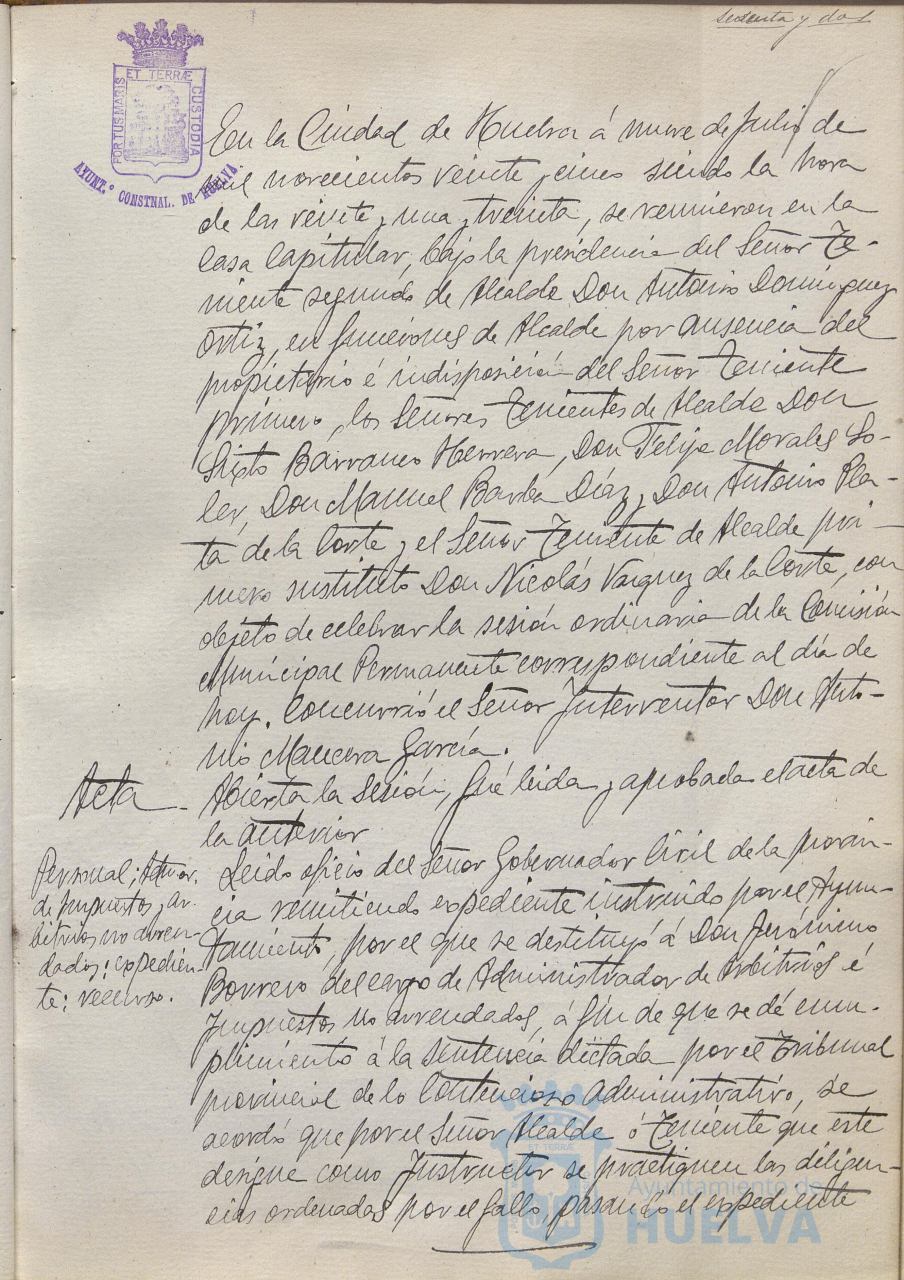 sesenta y dos
PORTUS MARIS ET TERRÆ CUSTODIA
AYUNT.º CONSTNAL. DE HUELVA
En la Ciudad de Huelva á nueve de Julio de
mil novecientos veinte y cinco siendo la hora
de las veinte y una y treinta, se reunieron en la
Casa Capitular, bajo la presidencia del Señor Te-
niente segundo de Alcalde Don Antonio Dominguez
Ortiz, en funciones de Alcalde por ausencia del
propietario é indisposición del Señor Teniente
primero, los Señores Tenientes de Alcalde Don
Sixto Barranco Herrera, Don Felipe Morales So-
ler, Don Manuel Barba Díaz y Don Antonio Pla-
ta de la Corte y el Señor Teniente de Alcalde pri-
mero sustituto Don Nicolás Vazquez de la Corte, con
objeto de celebrar la sesión ordinaria de la Comisión
Municipal Permanente correspondiente al día de
hoy. Concurrió el Señor Interventor Don Anto-
nio Mancera García.
Acta - Abierta la sesión, fué leida y aprobada el acta de
la anterior
Personal; Admor.
de Impuestos y ar-
bitrios no arren-
dados: expedien-
te: recurso.
Leido oficio del Señor Gobernador Civil de la provin-
cia remitiendo expediente instruido por el Ayun-
tamiento, por el que se destituyó á Don Jerónimo
Borrero del cargo de Administrador de Arbitrios é
Impuestos no arrendados, á fin de que se dé cum-
plimiento á la sentencia dictada por el Tribunal
provincial de lo Contencioso Administrativo, se
acordó que por el Señor Alcalde ó Teniente que este
designe como Instructor se practiquen las diligen-
cias ordenadas por el fallo, pasando el expediente
ET TERRÆ
Ayuntamiento de
HUELVA